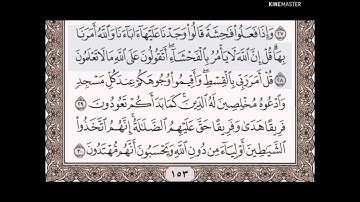 KINEMASTER
٢٧ وَإِذَا فَعَلُوا۟ فَـٰحِشَةً قَالُوا۟ وَجَدْنَا عَلَيْهَآ ءَابَآءَنَا وَٱللَّهُ أَمَرَنَا
بِهَا ۗ قُلْ إِنَّ ٱللَّهَ لَا يَأْمُرُ بِٱلْفَحْشَآءِ ۖ أَتَقُولُونَ عَلَى ٱللَّهِ مَا لَا تَعْلَمُونَ
٢٨ قُلْ أَمَرَ رَبِّى بِٱلْقِسْطِ ۖ وَأَقِيمُوا۟ وُجُوهَكُمْ عِندَ كُلِّ مَسْجِدٍ
وَٱدْعُوهُ مُخْلِصِينَ لَهُ ٱلدِّينَ ۚ كَمَا بَدَأَكُمْ تَعُودُونَ ٢٩
فَرِيقًا هَدَىٰ وَفَرِيقًا حَقَّ عَلَيْهِمُ ٱلضَّلَـٰلَةُ ۗ إِنَّهُمُ ٱتَّخَذُوا۟
ٱلشَّيَـٰطِينَ أَوْلِيَآءَ مِن دُونِ ٱللَّهِ وَيَحْسَبُونَ أَنَّهُم مُّهْتَدُونَ ٣٠
١٥٣